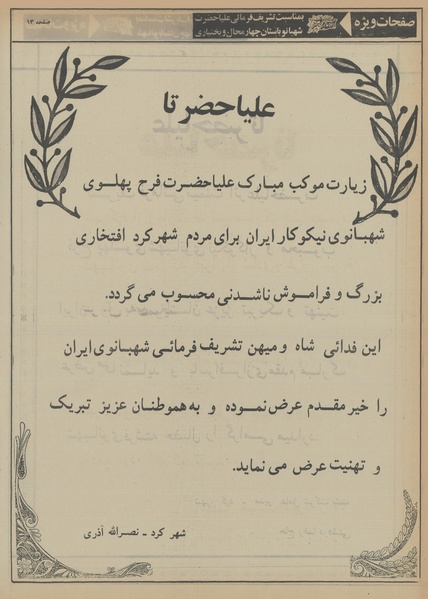 صفحات ویژه
بمناسبت تشریف فرمائی علیاحضرت
شهبانو باستان چهار محال و بختیاری
صفحه ۱۳
علیاحضرتا
زیارت موکب مبارک علیاحضرت فرح پهلوی
شهبانوی نیکوکار ایران برای مردم شهرکرد افتخاری
بزرگ و فراموش ناشدنی محسوب می گردد.
این فدائی شاه و میهن تشریف فرمائی شهبانوی ایران
را خیر مقدم عرض نموده و به هموطنان عزیز تبریک
و تهنیت عرض می نماید.
شهر کرد - نصرالله آذری